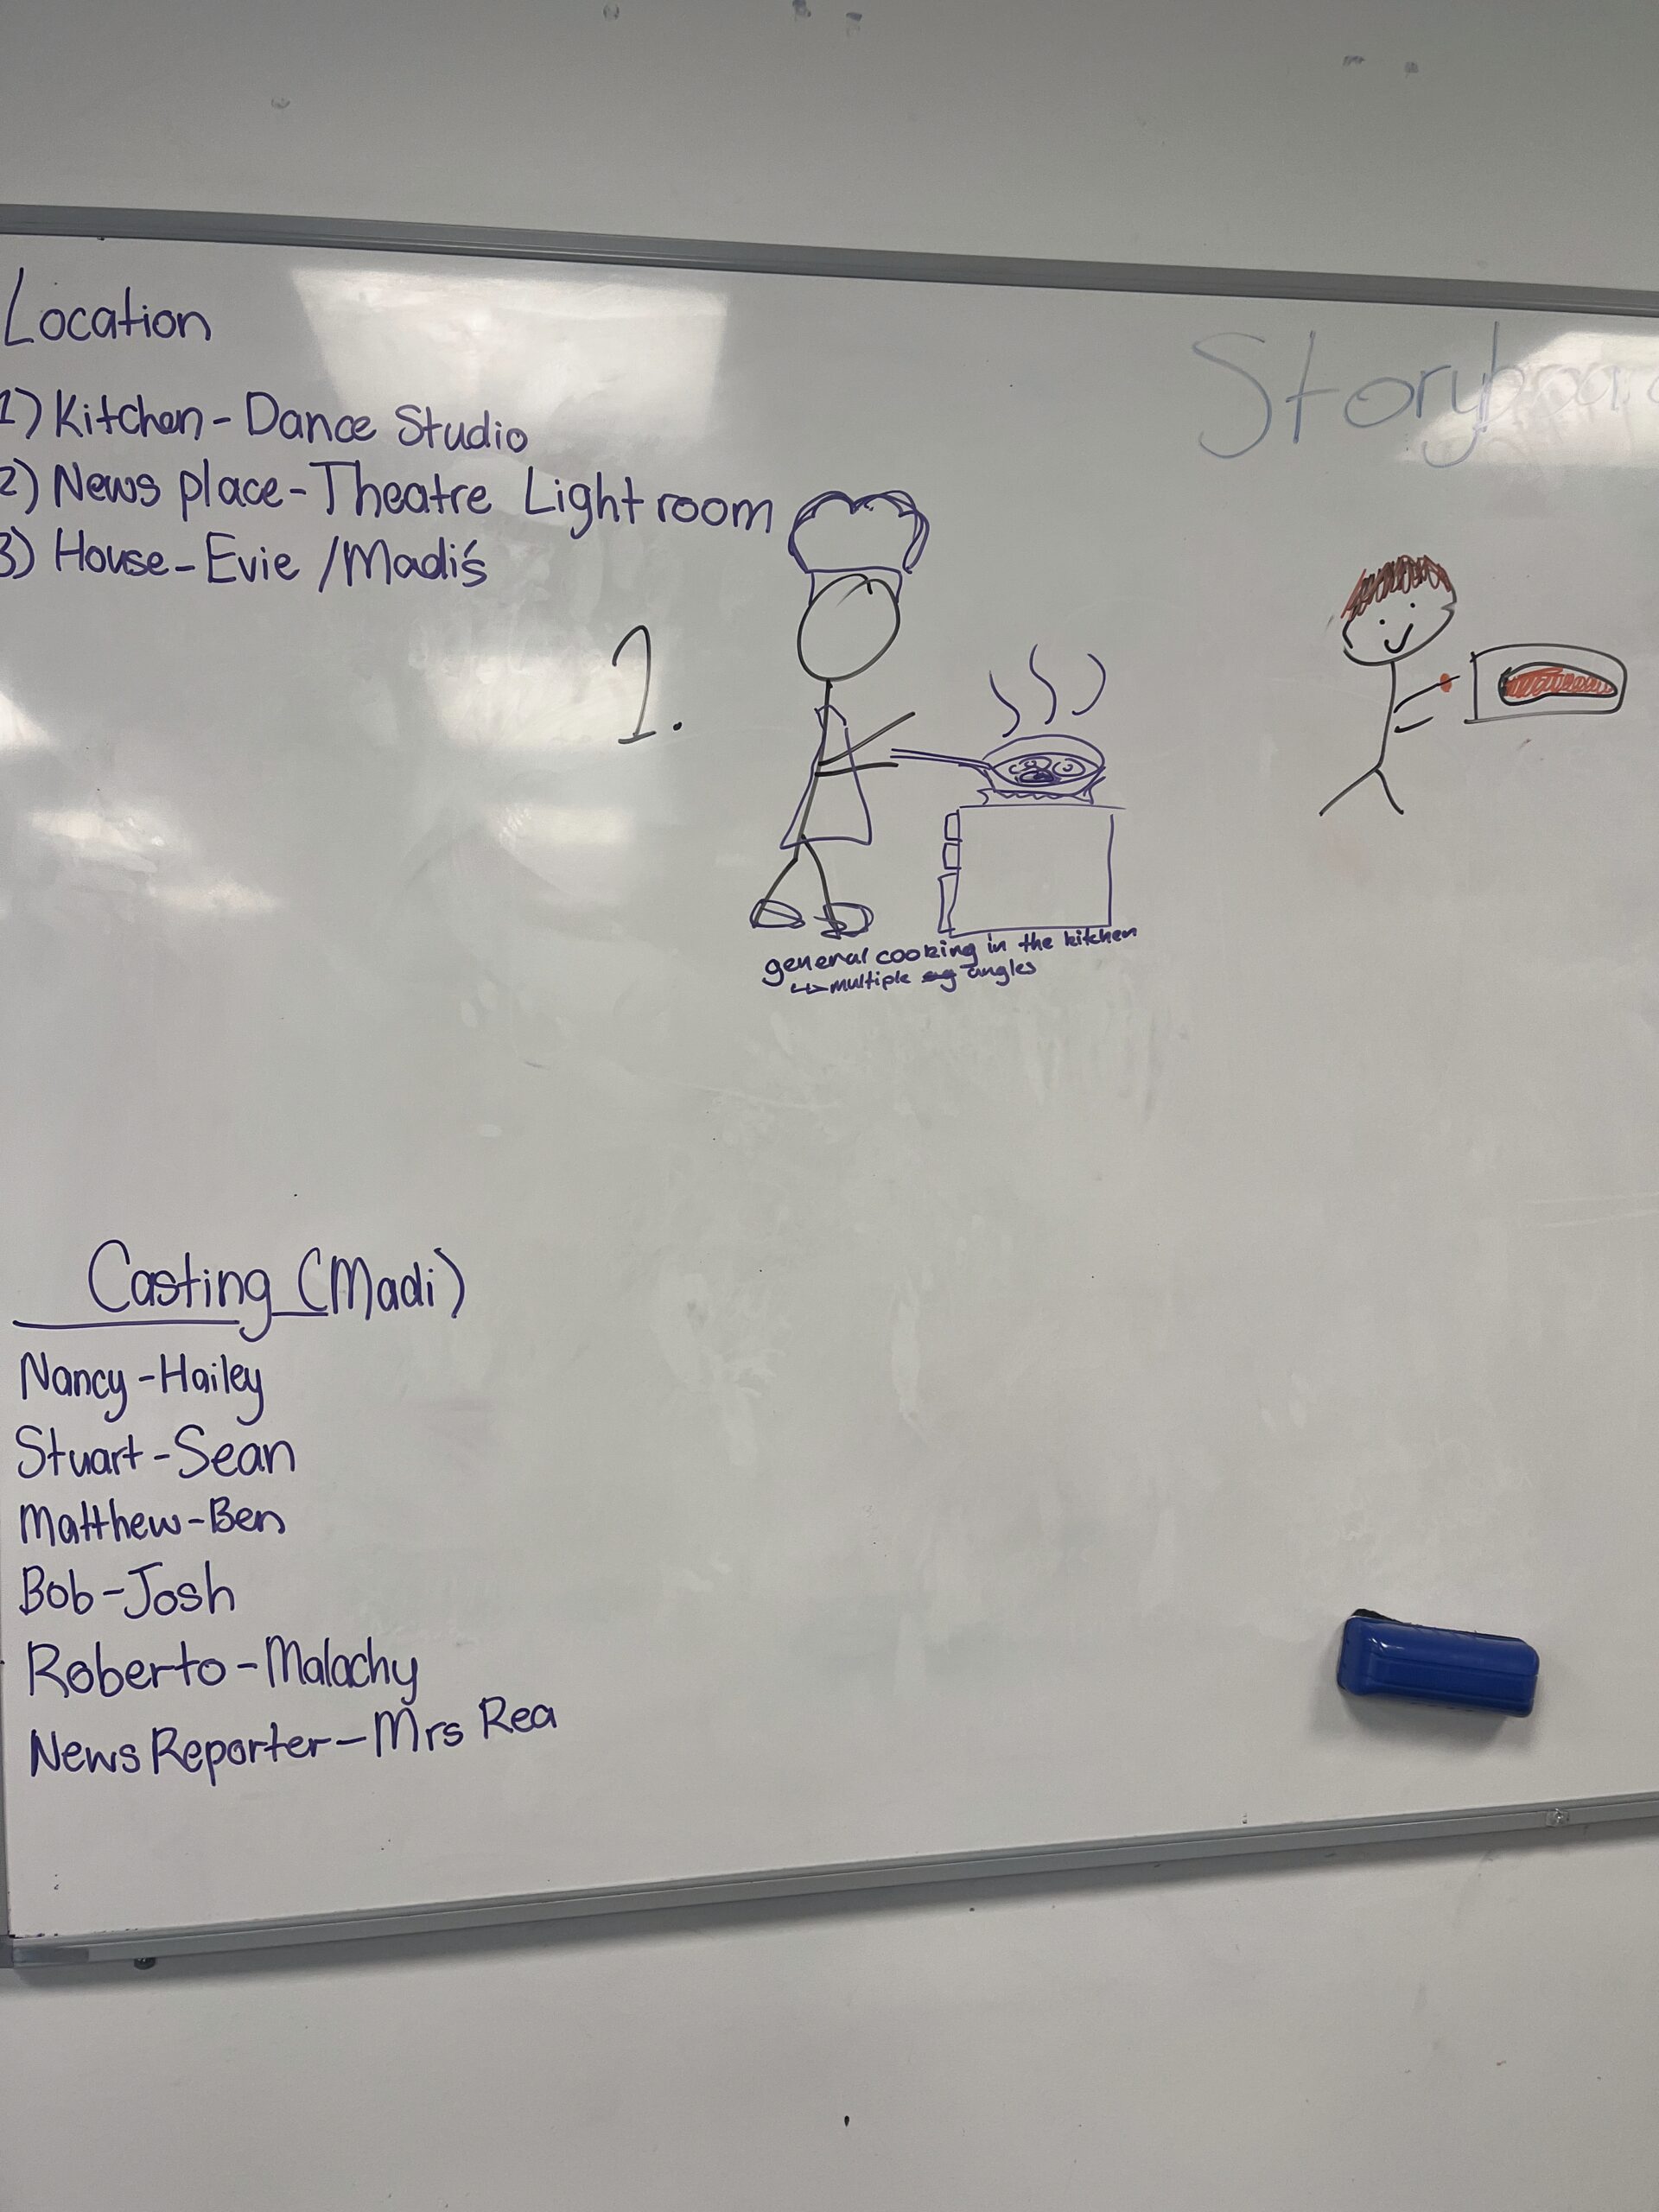 Location
1) Kitchen - Dance Studio
2) News place - Theatre Light room
3) House - Evie / Madi's
Storyboard
1.
general cooking in the kitchen
↳ multiple angles
Casting (Madi)
Nancy - Hailey
Stuart - Sean
Matthew - Ben
Bob - Josh
Roberto - Malachy
News Reporter - Mrs Rea